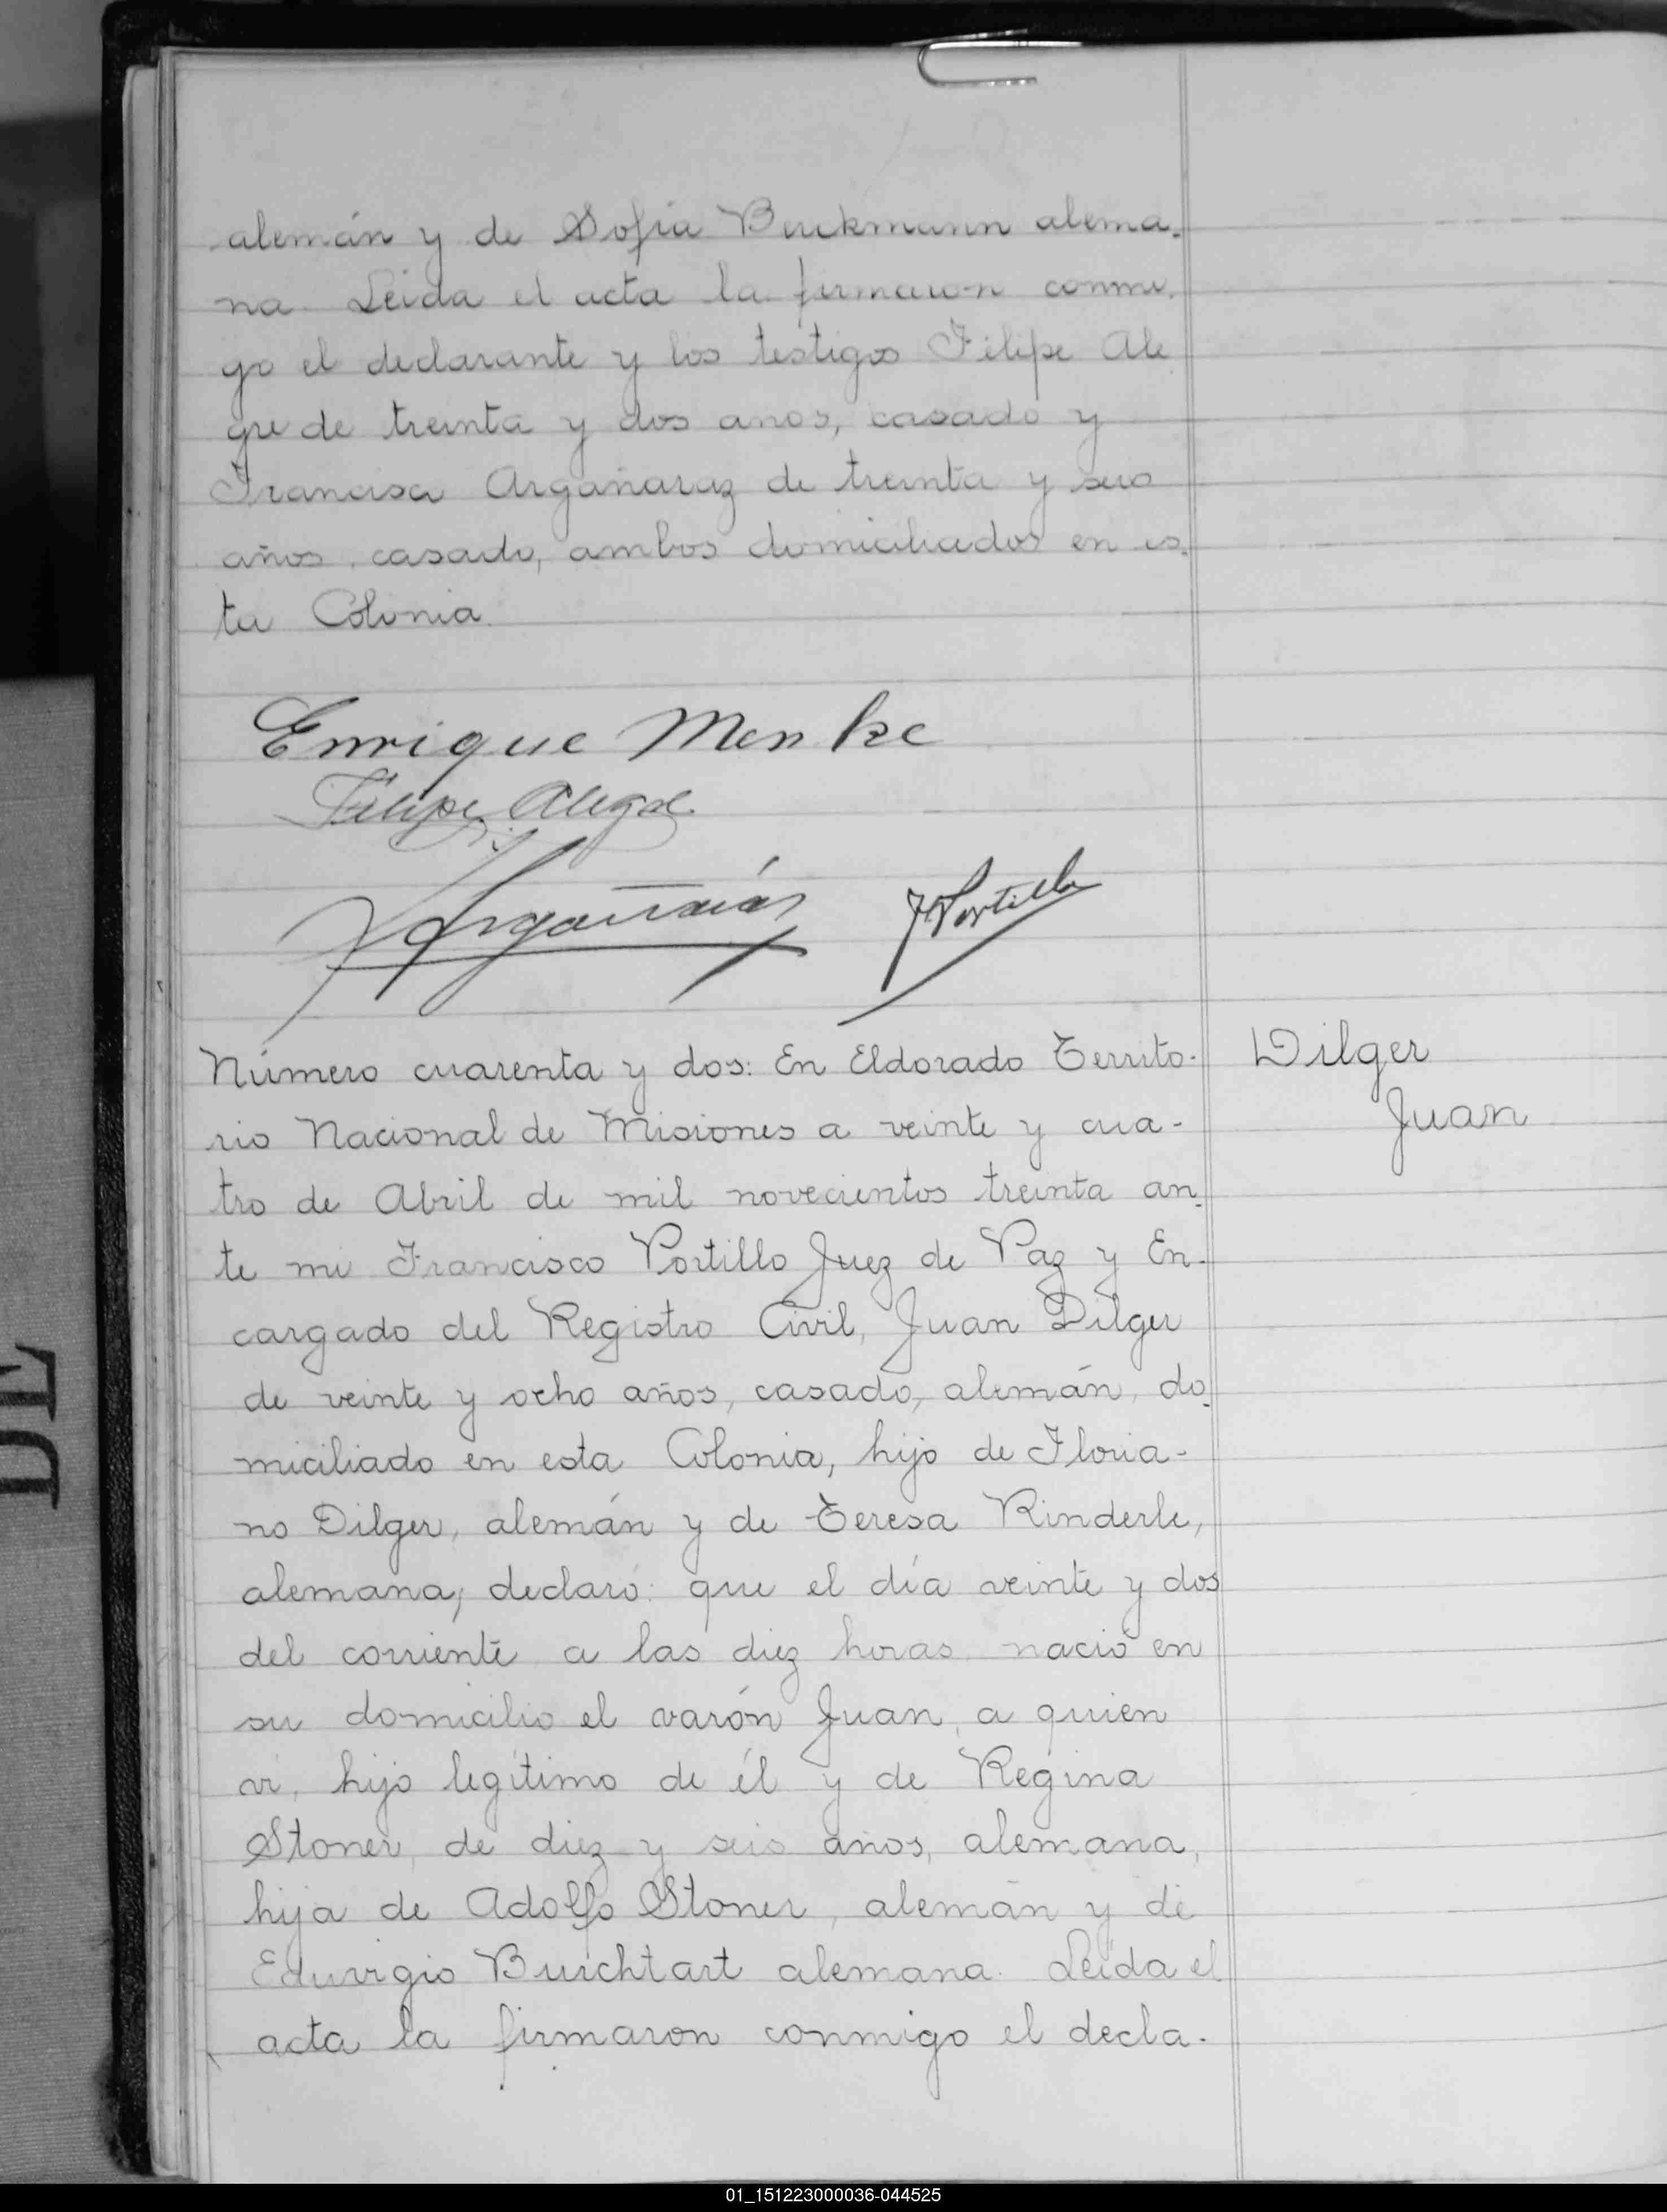 alemán y de Sofia Buckmann alema-
na. Leida el acta la firmaron conmi-
go el declarante y los testigos Felipe Ale
gre de treinta y dos anos, casado y
Francisco Argañaraz de treinta y seis
años, casado, ambos domiciliados en es-
ta Colonia.
Enrique Menke
Felipe Alegre
Argañaráz FPortillo
Número cuarenta y dos: En Eldorado Territo-
rio Nacional de Misiones a veinte y cua-
tro de Abril de mil novecientos treinta an-
te mi Francisco Portillo Juez de Paz y En-
cargado del Registro Civil, Juan Dilger
de veinte y ocho años, casado, alemán, do-
miciliado en esta Colonia, hijo de Floria-
no Dilger, alemán y de Teresa Rinderle,
alemana, declaró: que el día veinte y dos
del corriente a las diez horas nació en
su domicilio el varón Juan, a quien
vi, hijo legítimo de él y de Regina
Stoner, de diez y seis años, alemana,
hija de Adolfo Stoner, alemán y de
Eduvigio Burchtart alemana. Leida el
acta la firmaron conmigo el decla-
Dilger
Juan
DE
01_151223000036-044525